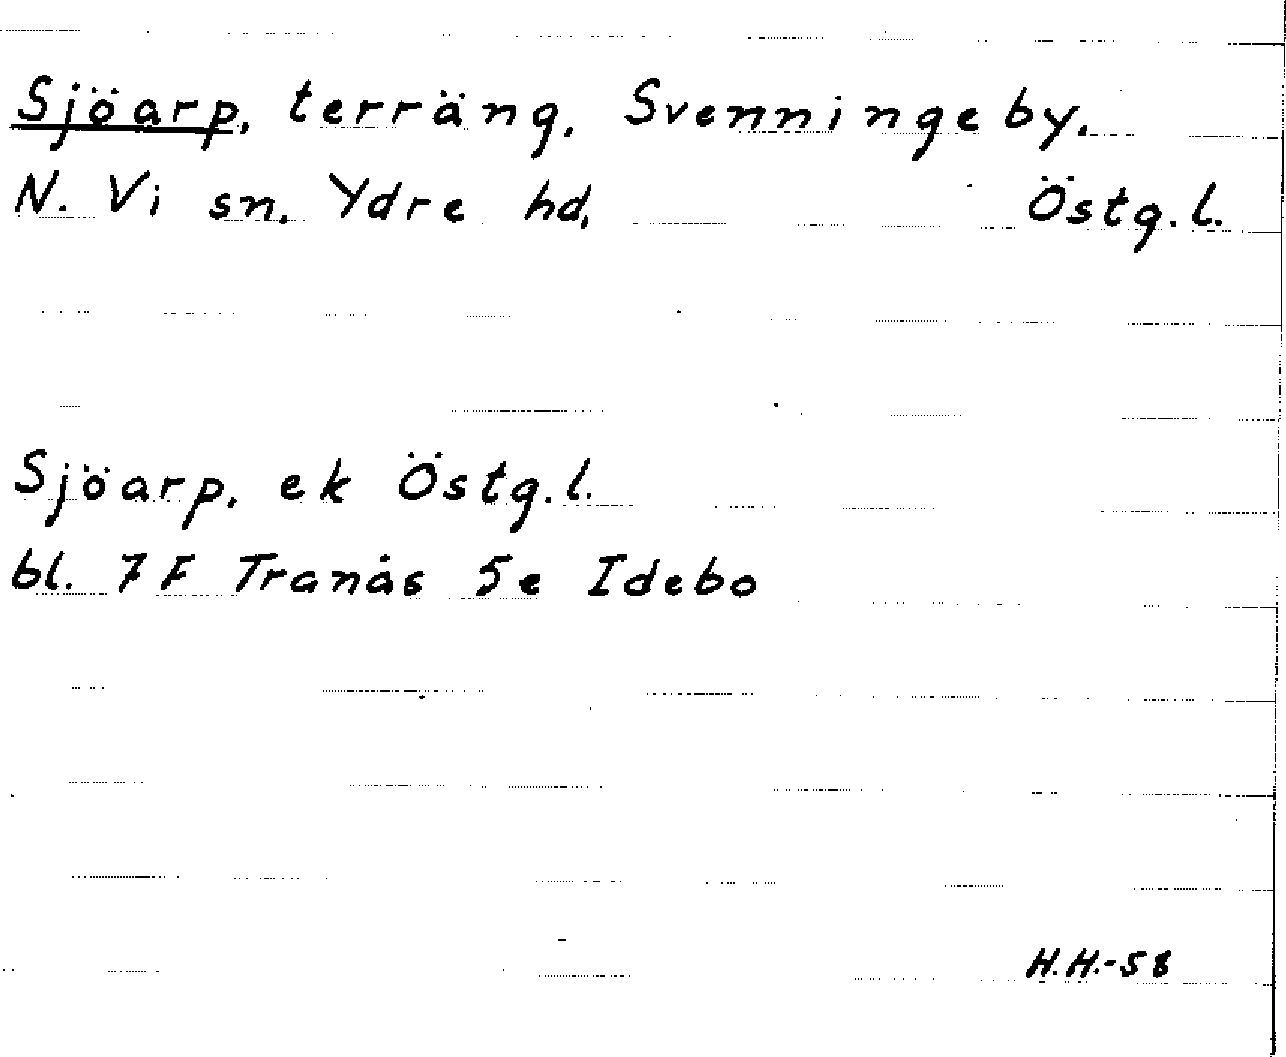 Sjöarp, terräng. Svenningeby.
N. Vi sn. Ydre hd. Östg.l.
Sjöarp, ek Östg.l.
bl. 7F Tranås 5e Idebo
H.H.-58